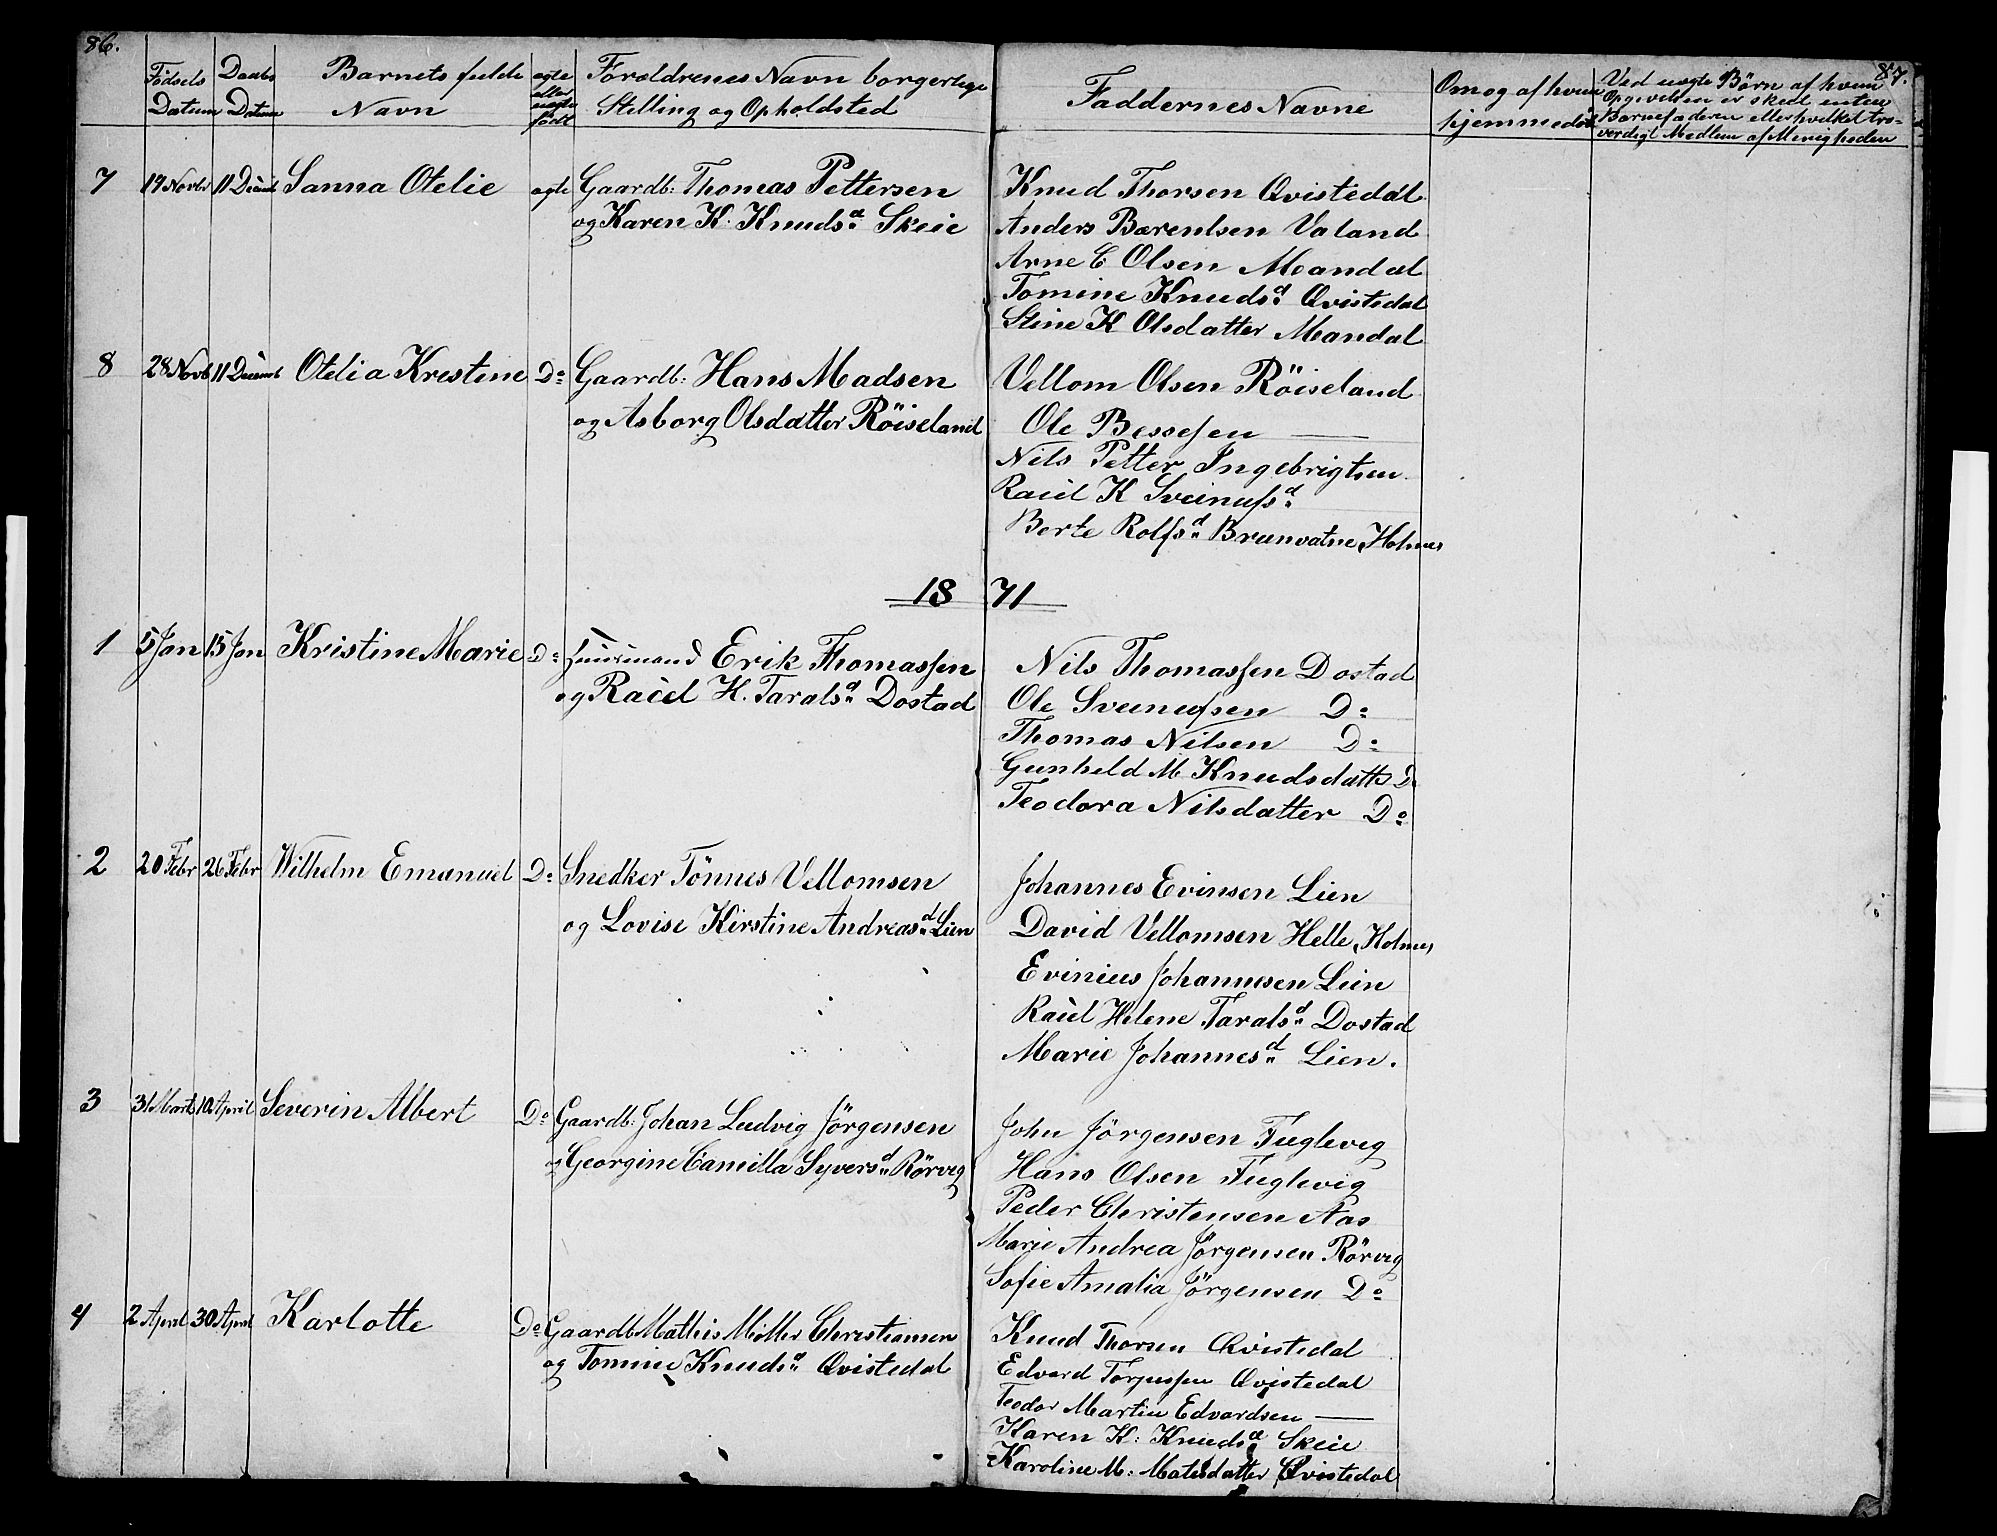 86.
87.
Fødsels Datum
Daabs Datum
Barnets fulde Navn
ægte eller uægte født
Forældrenes Navn borgerlige Stilling og Opholdsted
Faddernes Navne
Om og af hvem hjemmedøbt
Ved uægte Börn af hvem
Opgivelsen er skeet enten
Barnefaderen eller hvilket tro-
verdigt Medlem af Menigheden
7 19 Novbr 11 Decemb Sanna Otelie ægte Gaardb: Thomas Pettersen
og Karen K. Knudsd Skeie
Knud Thorsen Qvistedal
Anders Bærentsen Valand
Arne E Olsen Mandal
Tomine Knudsd Qvistedal
Stine K Olsdatter Mandal
8 28 Novb 11 Decemb Otelia Krestine Do Gaardb: Hans Madsen
og Asborg Olsdatter Röiseland
Vellom Olsen Röiseland
Ole Bessesen —
Nils Petter Ingebrigtsen
Raiel K Sveinusd
Berte Rolfsd Brunvatne, Holmes
1871
1 5 Jan 15 Jan Kristine Marie Do Huusmand Erik Thomassen
og Raiel H. Taralsd Dostad
Nils Thomassen Dostad
Ole Sveinusen Do
Thomas Nilsen Do
Gunheld M Knudsdatt D
Teodora Nilsdatter Do
2 20 Febr 26 Febr Wilhelm Emanuel Do Snedker Tönnes Vellomsen
og Lovise Kirstine Andreasd Lien
Johannes Evinsen Lien
David Vellomsen Helle, Holmes
Evinius Johannesen Lien
Raiel Helene Taralsd Dostad
Marie Johannesd Lien.
3 31 Marts 10 April Severin Albert Do Gaardb: Johan Ludvig Jörgensen
og Georgine Camilla Syversd Rörvig
John Jörgensen Fuglevig
Hans Olsen Fuglevig
Peder Christensen Aas
Marie Andrea Jörgensen Rörvig
Sofie Amalia Jörgensen Do
4 2 April 30 April Karlotte Do Gaardb Mathis Møller Christiansen
og Tomine Knudsd Qvistedal
Knud Thorsen Qvistedal
Edvard Torjussen Qvistedal
Teodor Martin Edvardsen —
Karen K: Knudsd Skeie
Karoline M: Matisdatter Qvistedal